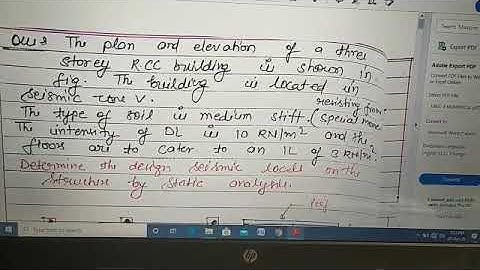 Que 3 The plan and elevation of a three
storey R.CC building is shown in
fig. The building is located in
seismic zone V.
The type of soil is medium stiff. (special moment
resisting frame
The intensity of DL is 10 KN/m² and the
floors are to cater to an IL of 3 KN/m².
Determine the design seismic loads on the
structure by static analysis.
Export PDF
Adobe Export PDF
Convert to
Type here to search
hp